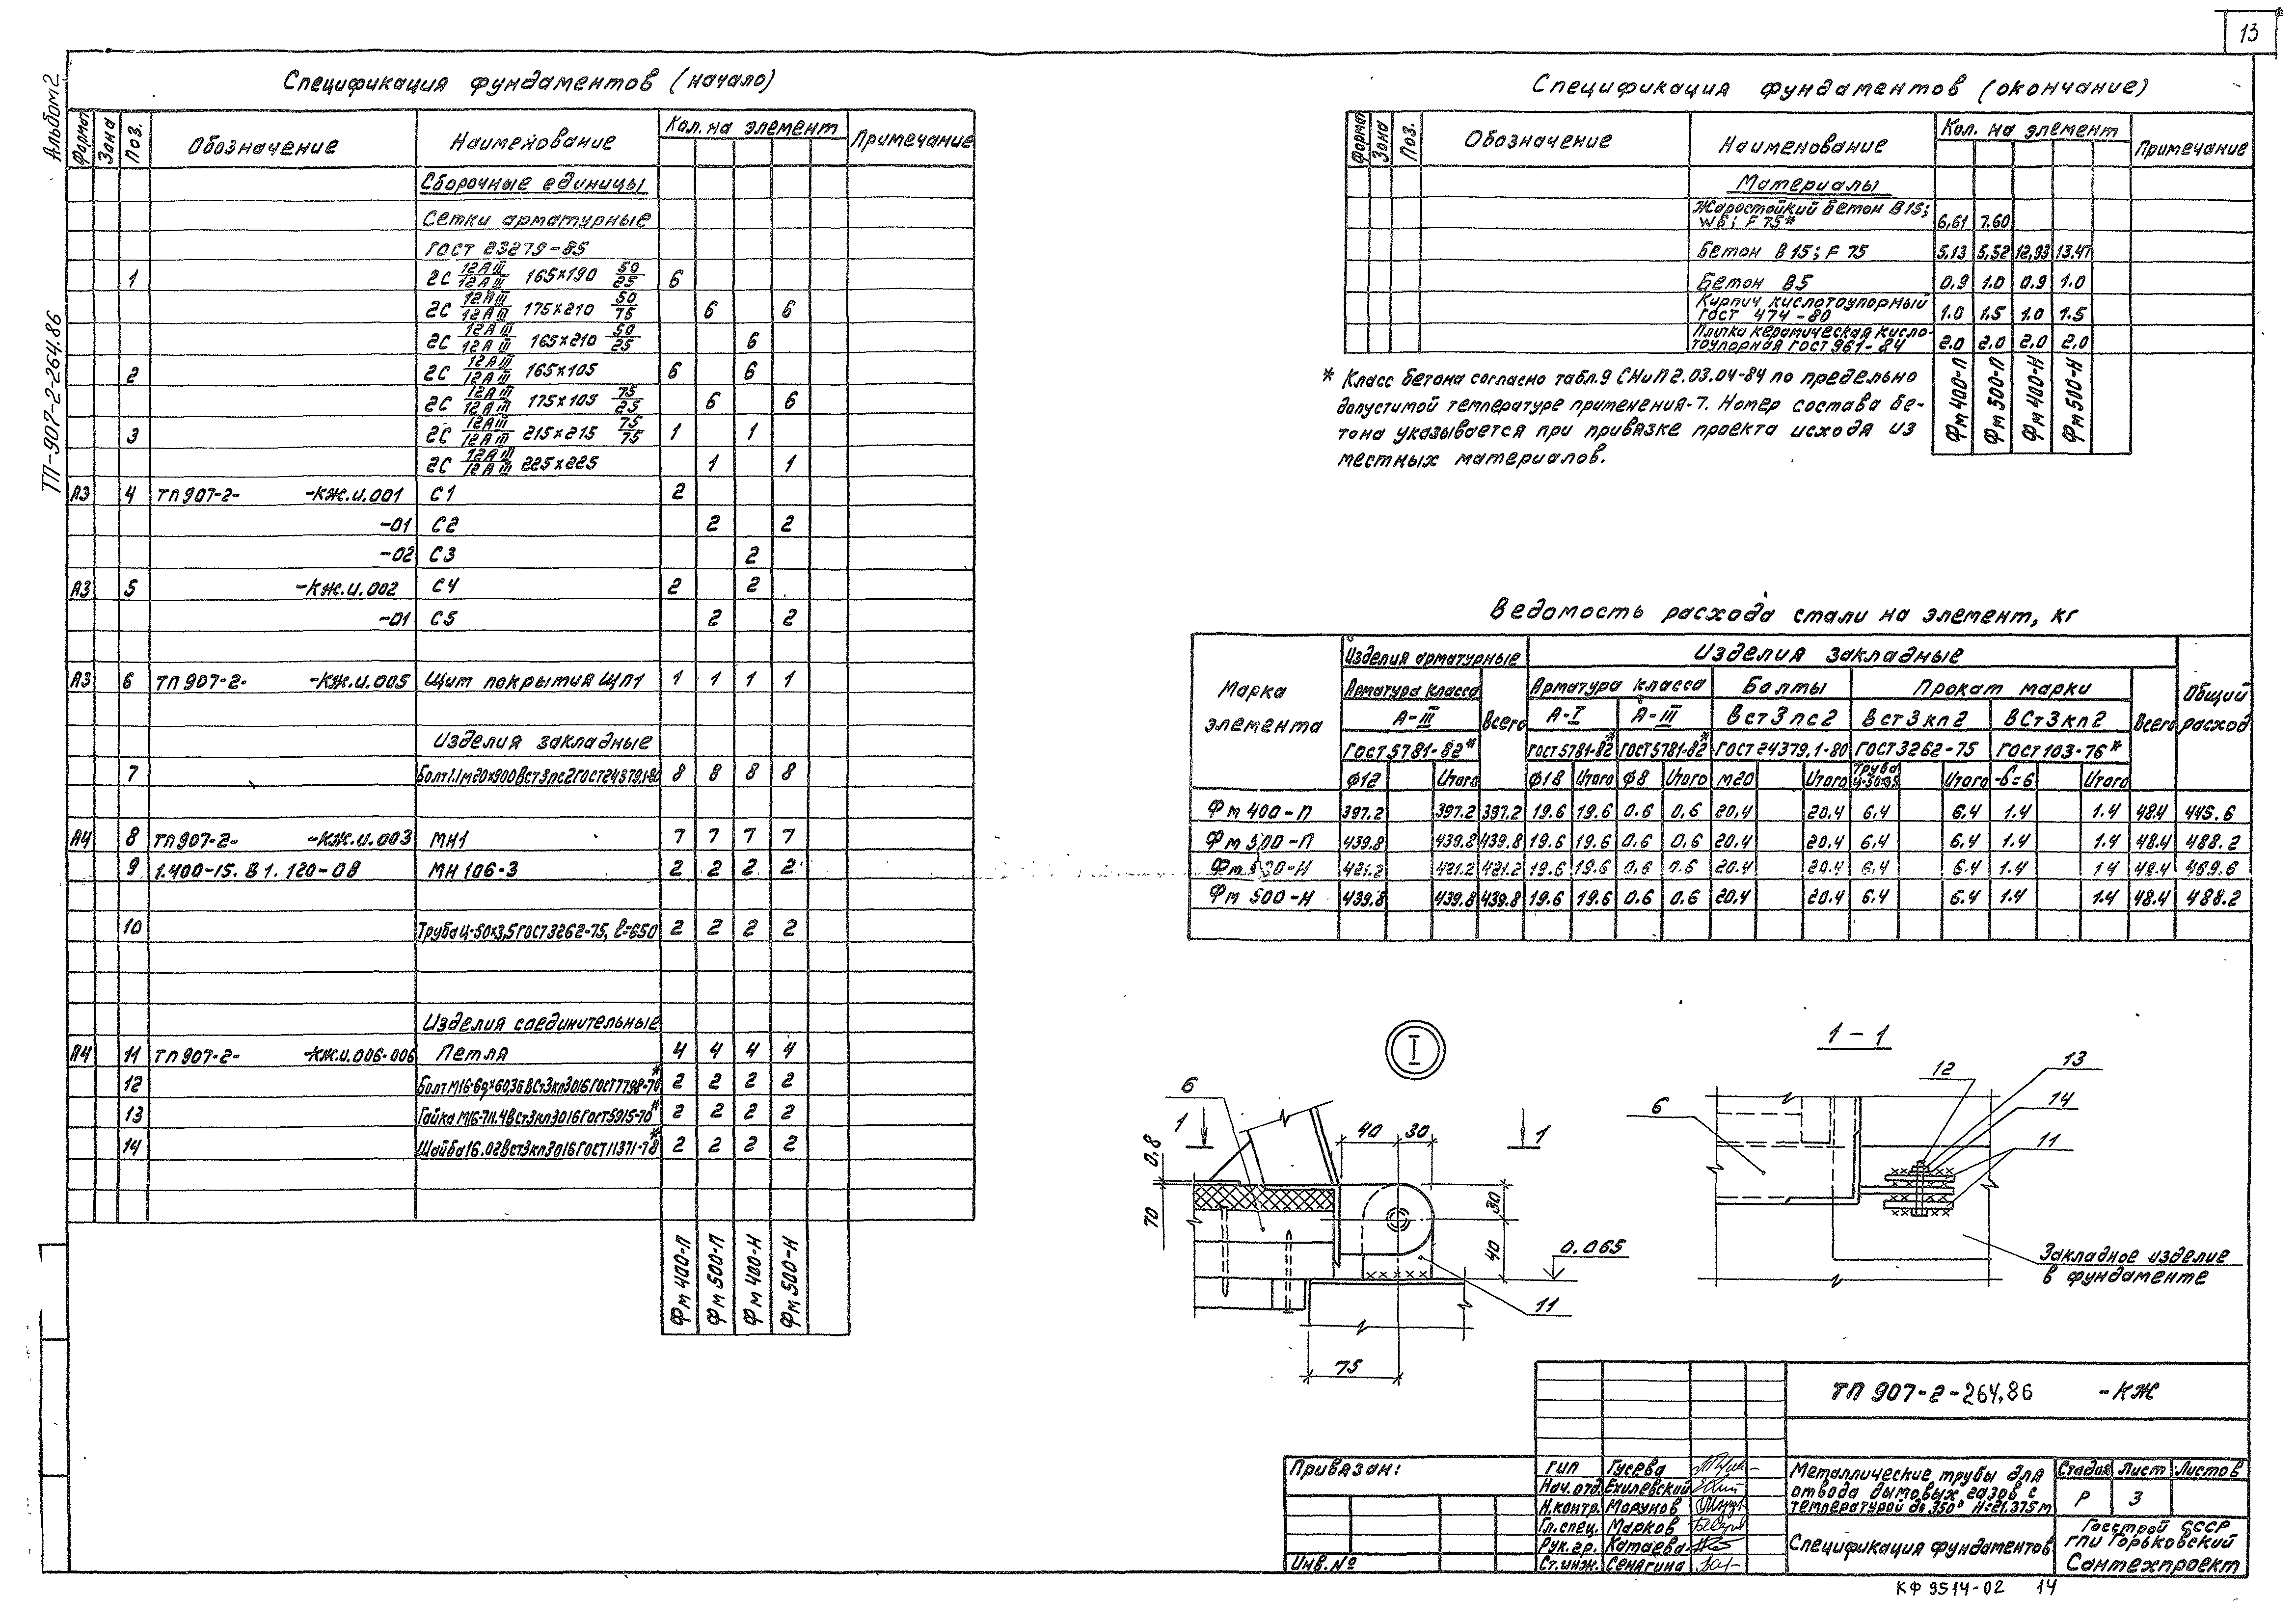 13
Альбом 2
ТП-907-2-264.86
Спецификация фундаментов (начало)
Формат Зона Поз. Обозначение Наименование Кол. на элемент Примечание
Сборочные единицы
Сетки арматурные
ГОСТ 23279-85
1 2С 12АIII/12АIII 165×190 50/25 6
2С 12АIII/12АIII 175×210 50/75 6 6
2С 12АIII/12АIII 165×210 50/25 6
2 2С 12АIII/12АIII 165×105 6 6
2С 12АIII/12АIII 175×105 75/25 6 6
3 2С 12АIII/12АIII 215×215 75/75 1 1
2С 12АIII/12АIII 225×225 1 1
А3 4 ТП907-2- -КЖ.И.001 С1 2
-01 С2 2 2
-02 С3 2
А3 5 -КЖ.И.002 С4 2 2
-01 С5 2 2
А3 6 ТП907-2- -КЖ.И.005 Щит покрытия ЩП1 1 1 1 1
Изделия закладные
7 Болт1.1м20×900ВСт3пс2ГОСТ24379.1-80 8 8 8 8
А4 8 ТП907-2- -КЖ.И.003 МН1 7 7 7 7
9 1.400-15. В1. 120-08 МН 106-3 2 2 2 2
10 Труба Ц-50×3,5 ГОСТ3262-75, ℓ=650 2 2 2 2
Изделия соединительные
А4 11 ТП907-2- -КЖ.И.006-006 Петля 4 4 4 4
12 Болт М16-6g×60,36ВСт3кп3016ГОСТ7798-70* 2 2 2 2
13 Гайка М16-7Н.4ВСт3кп3016ГОСТ5915-70* 2 2 2 2
14 Шайба16.02ВСт3кп3016ГОСТ11371-78* 2 2 2 2
Фм 400-П Фм 500-П Фм 400-Н Фм 500-Н
Спецификация фундаментов (окончание)
Формат Зона Поз. Обозначение Наименование Кол. на элемент Примечание
Материалы
Жаростойкий бетон В15;
W6; F75* 6,61 7.60
Бетон В15; F75 5,13 5,52 12,93 13.47
Бетон В5 0.9 1.0 0.9 1.0
Кирпич кислотоупорный
ГОСТ 474-80 1.0 1.5 1.0 1.5
Плитка керамическая кисло-
тоупорная ГОСТ 961-84 2,0 2,0 2,0 2,0
Фм 400-П Фм 500-П Фм 400-Н Фм 500-Н
* Класс бетона согласно табл.9 СНиП 2.03.04-84 по предельно
допустимой температуре применения-7. Номер состава бе-
тона указывается при привязке проекта исходя из
местных материалов.
Ведомость расхода стали на элемент, кг
Марка элемента Изделия арматурные Изделия закладные Общий расход
Арматура класса Всего Арматура класса Болты Прокат марки Всего
А-III А-I А-III Вст3пс2 Вст3кп2 ВСт3кп2
ГОСТ5781-82* ГОСТ5781-82* ГОСТ5781-82* ГОСТ24379.1-80 ГОСТ3262-75 ГОСТ103-76*
Ф12 Итого Ф18 Итого Ф8 Итого м20 Итого Труба Ц-50×3,5 Итого -δ=6 Итого
Фм 400-П 397.2 397.2 397,2 19.6 19.6 0.6 0.6 20,4 20.4 6.4 6.4 1.4 1.4 48.4 445.6
Фм 500-П 439.8 439.8 439.8 19.6 19.6 0.6 0.6 20.4 20.4 6.4 6.4 1.4 1.4 48.4 488.2
Фм -Н 421.2 421.2 421.2 19.6 19.6 0.6 0.6 20.4 20.4 6.4 6.4 1.4 1.4 48.4 469.6
Фм 500-Н 439.8 439,8 439.8 19.6 19.6 0.6 0.6 20.4 20.4 6.4 6.4 1.4 1.4 48.4 488.2
I
6
1
1
40 30
0.8
70
30
40
0.065
11
75
1-1
6
12
13
14
11
Закладное изделие
в фундаменте
ТП 907-2-264,86 -КЖ
Привязан:
Инв.№
ГИП Гусева
Нач.отд. Ехилевский
Н.контр. Морунов
Гл.спец. Марков
Рук.гр. Катаева
Ст.инж. Сенягина
Металлические трубы для
отвода дымовых газов с
температурой до 350° Н=21.375м
Стадия Лист Листов
Р 3
Спецификация фундаментов
Госстрой СССР
ГПИ Горьковский
Сантехпроект
КФ 9514-02 14